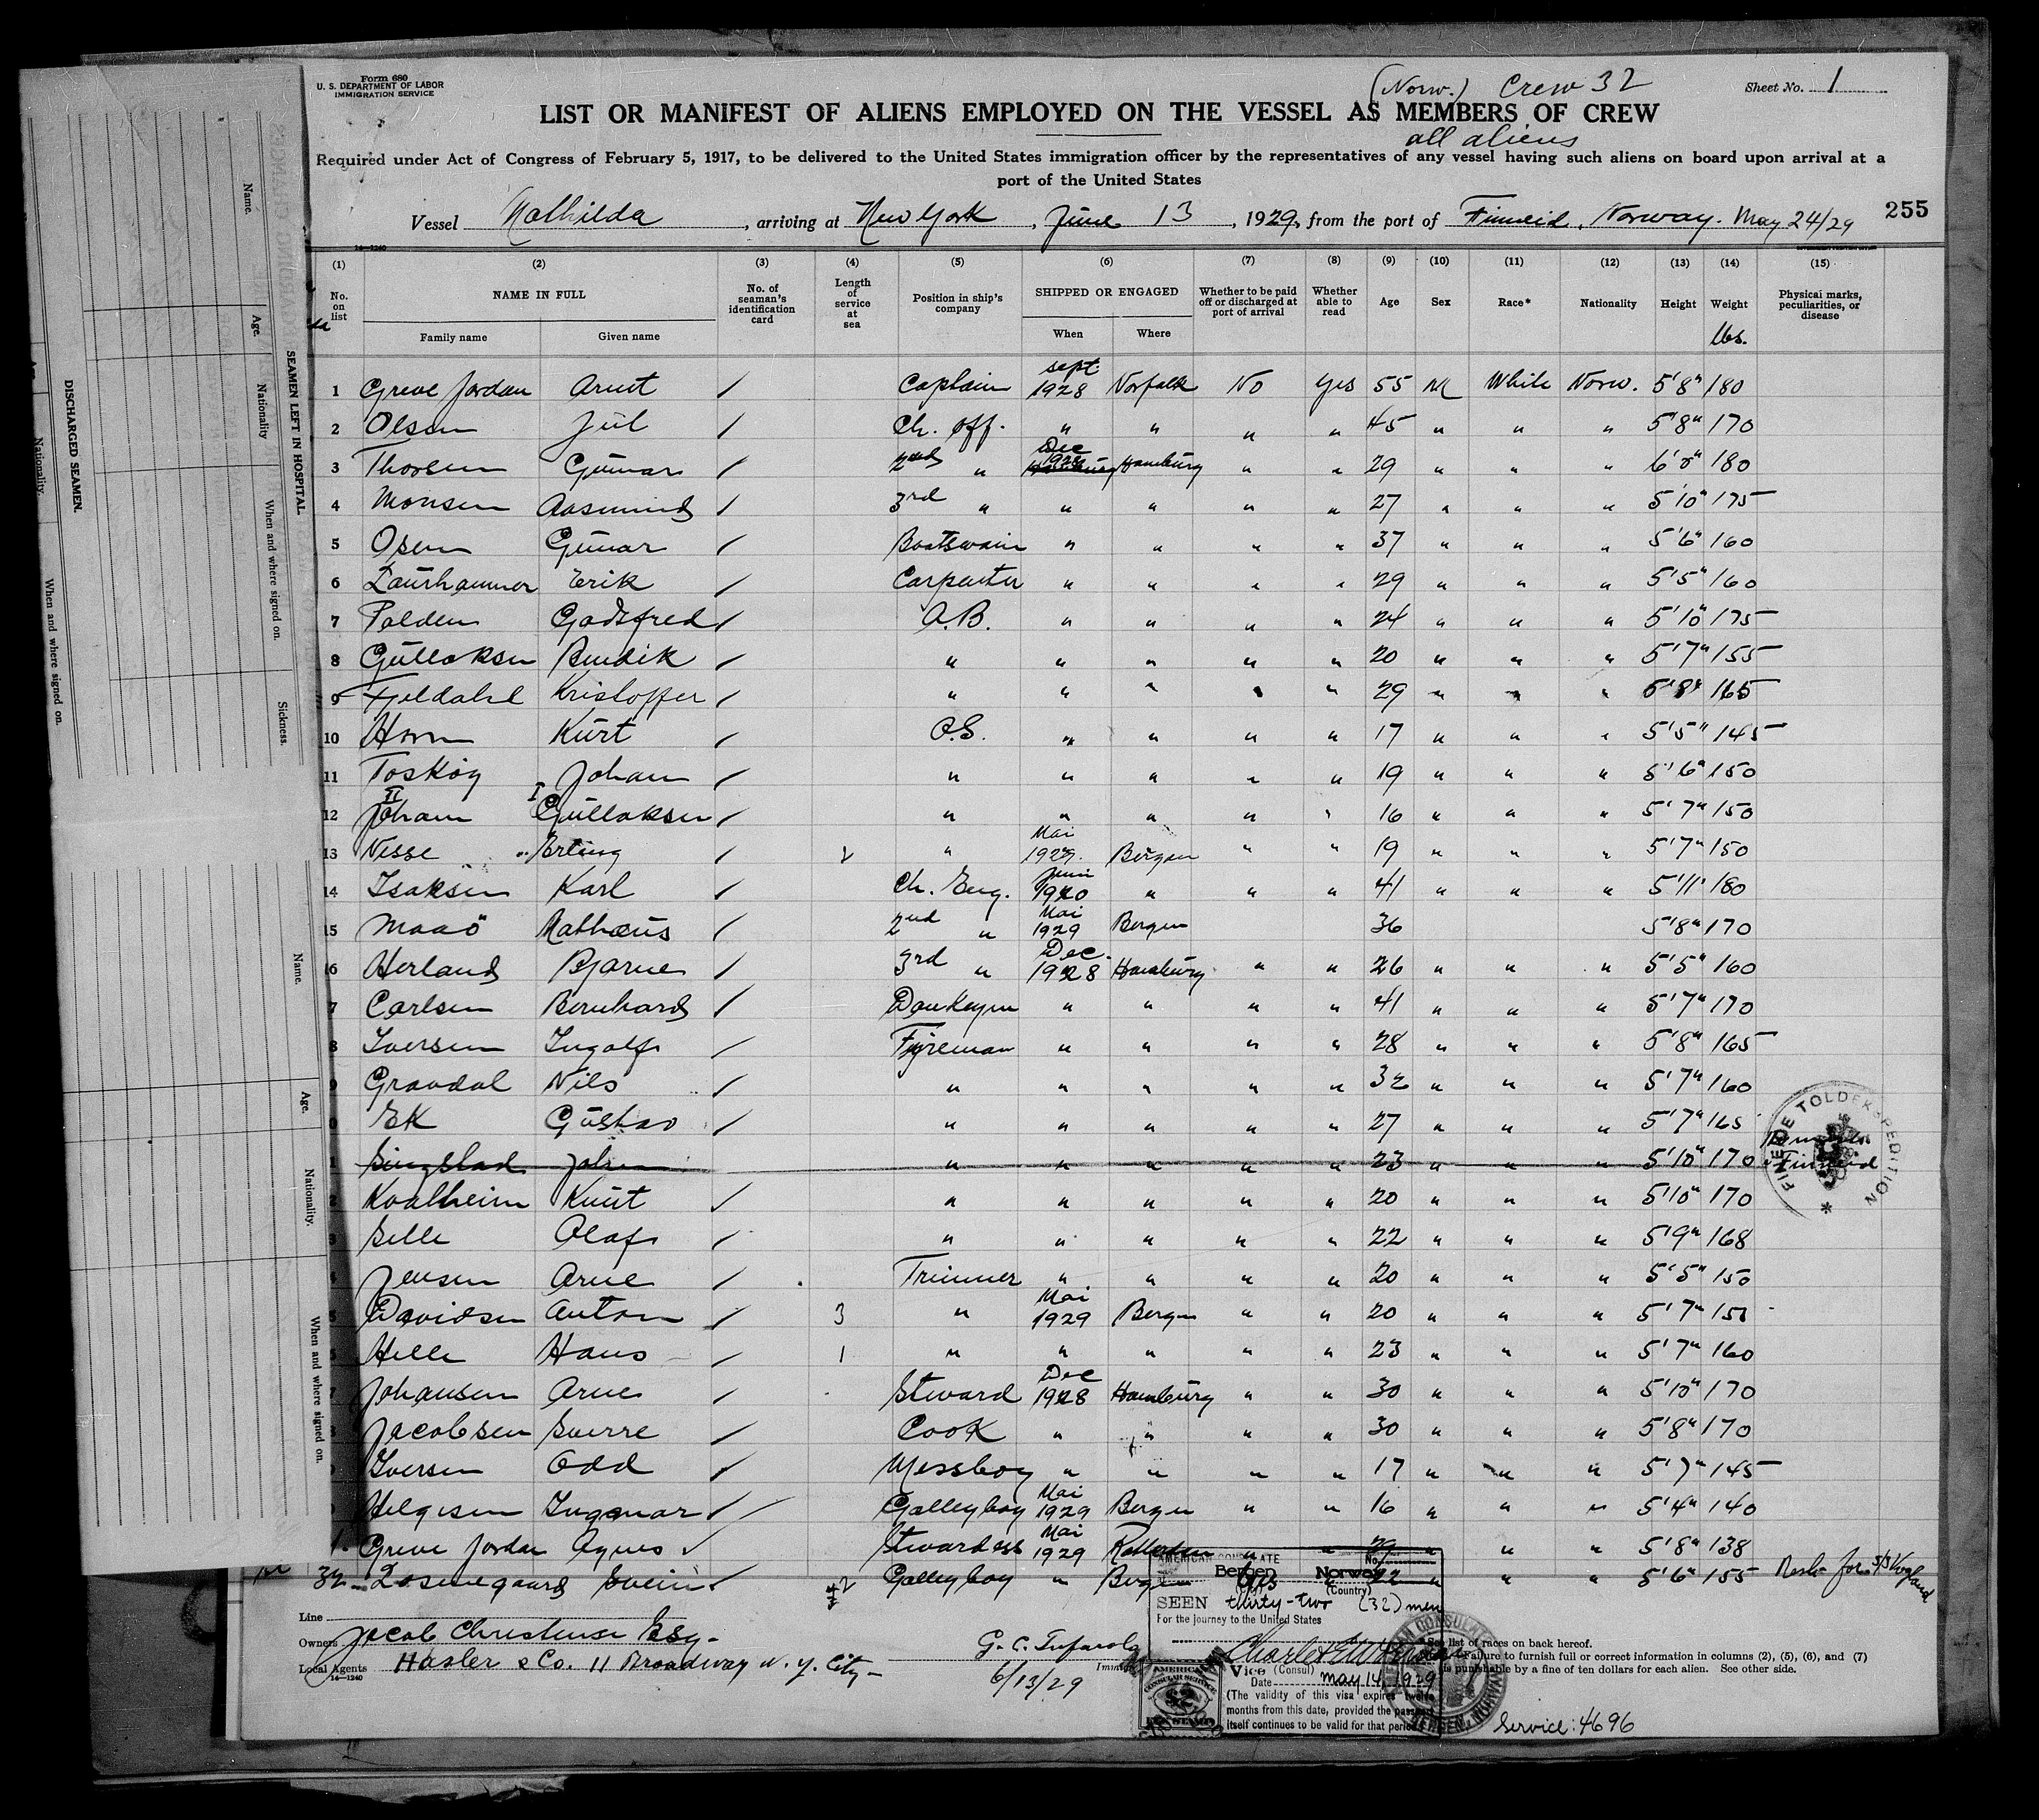 Form 680
U. S. DEPARTMENT OF LABOR
IMMIGRATION SERVICE
(Norw.) Crew 32
Sheet No. 1
LIST OR MANIFEST OF ALIENS EMPLOYED ON THE VESSEL AS MEMBERS OF CREW
all aliens
Required under Act of Congress of February 5, 1917, to be delivered to the United States immigration officer by the representatives of any vessel having such aliens on board upon arrival at a
port of the United States
Vessel Mathilda, arriving at New York, June 13, 1929, from the port of Finneid, Norway. May 24/29
255
14—1240
(1) (2) (3) (4) (5) (6) (7) (8) (9) (10) (11) (12) (13) (14) (15)
No. on list
NAME IN FULL
Family name
Given name
No. of seaman's identification card
Length of service at sea
Position in ship's company
SHIPPED OR ENGAGED
When
Where
Whether to be paid off or discharged at port of arrival
Whether able to read
Age
Sex
Race*
Nationality
Height
Weight
lbs.
Physical marks, peculiarities, or disease
1 Greve Jordan Arnt / Captain Sept. 1928 Norfolk No Yes 55 M White Norw. 5'8" 180
2 Olsen Jul / Ch. off. " " " " 45 " " " 5'8" 170
3 Thorsen Gunnar / 2nd " Dec 1928 Hamburg " " 29 " " " 6'0" 180
4 Monsen Aasmund / 3rd " " " " " 27 " " " 5'10" 175
5 Osen Gunnar / Boatswain " " " " 37 " " " 5'6" 160
6 Laurhammer Erik / Carpenter " " " " 29 " " " 5'5" 160
7 Polden Godtfred / A.B. " " " " 24 " " " 5'10" 175
8 Gullaksen Bendik / " " " " " 20 " " " 5'7" 155
9 Fjeldahl Kristoffer / " " " " " 29 " " " 5'8" 165
10 Horn Kurt / O.S. " " " " 17 " " " 5'5" 145
11 Toskog Johan / " " " " " 19 " " " 5'6" 150
12 II Johan I Gullaksen / " " " " " 16 " " " 5'7" 150
13 Nesse Erling / 2 " Mai 1929. Bergen " " 19 " " " 5'7" 150
14 Isaksen Karl / Ch. Eng. Juni 1920 " " " 41 " " " 5'11" 180
15 Maaö Mathæus / 2nd " Mai 1929 Bergen 36 5'8" 170
16 Herland Bjarne / 3rd " Dec. 1928 Hamburg " " 26 " " " 5'5" 160
7 Carlsen Bernhard / Donkeym " " " " 41 " " " 5'7" 170
8 Iversen Ingolf / Fireman " " " " 28 " " " 5'8" 165
9 Gravdal Nils / " " " " " 32 " " " 5'7" 160
0 Ek Gustav / " " " " " 27 " " " 5'7" 165
1 Singstad Johan " " " " " 23 " " " 5'10" 170 Finneid
2 Kvalheim Knut / " " " " " 20 " " " 5'10" 170
3 Selle Olaf / " " " " " 22 " " " 5'9" 168
4 Jensen Arne / Trimmer " " " " 20 " " " 5'5" 150
5 Davidsen Anton / 3 " Mai 1929 Bergen " " 20 " " " 5'7" 155
Helle Hans / 1 " " " " " 23 " " " 5'7" 160
7 Johansen Arne / Steward Dec 1928 Hamburg " " 30 " " " 5'10" 170
Jacobsen Sverre / Cook " " " " 30 " " " 5'8" 170
Iversen Odd / Messboy " " " " 17 " " " 5'7" 145
Helgesen Ingemar / Galleyboy Mai 1929 Bergen " " 16 " " " 5'4" 140
1 Greve Jordan Agnes Stewardess Mai 1929 Rotterdam " " " " " 5'8" 138
32 Svein / 2 Galleyboy " Bergen " " " 5'6" 155
FINEIDE TOLDEKSPEDITION
Line
Owners Jacob Christensen Esq.
Local Agents Hasler & Co. 11 Broadway N. Y. City
14—1240
6/13/29
AMERICAN CONSULATE
No.
Bergen Norway
(City) (Country)
SEEN thirty-two (32) men
For the journey to the United States
Vice (Consul)
Date May 14, 1929
(The validity of this visa expires twelve
months from this date, provided the passport
itself continues to be valid for that period)
AMERICAN CONSULAR SERVICE
$2
FEE STAMP
AMERICAN CONSULATE
BERGEN, NORWAY
Service: 4696
*See list of races on back hereof.
Failure to furnish full or correct information in columns (2), (5), (6), and (7)
is punishable by a fine of ten dollars for each alien. See other side.
DISCHARGED SEAMEN.
Nationality.
When and where signed on.
SEAMEN LEFT IN HOSPITAL
Name.
Age.
Nationality
When and where signed on.
Sickness.
Name.
Age.
Nationality.
When and where signed on.